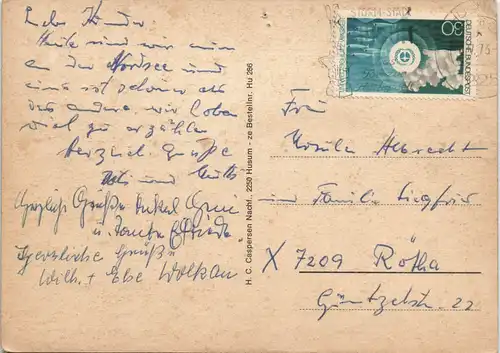 Liebe Kinder
Heute sind wir nun
an der Nordsee und
eins ist schöner als
das andere. wir haben
viel zu erzählen
Herzul. Grüße
Vati und Mutti
Herzliche Grüße Onkel
u. Tante Elfriede
Herzliche Grüße
Wilh. + Else Wolkau
H. C. Caspersen Nachf., 2250 Husum - ze Bestellnr. Hu 286
STORM-STADT
30
DEUTSCHE BUNDESPOST
Frau
Ursula Albrecht
und Familie Siegfried
X 7209 Rötha
Güntzelstr. 22